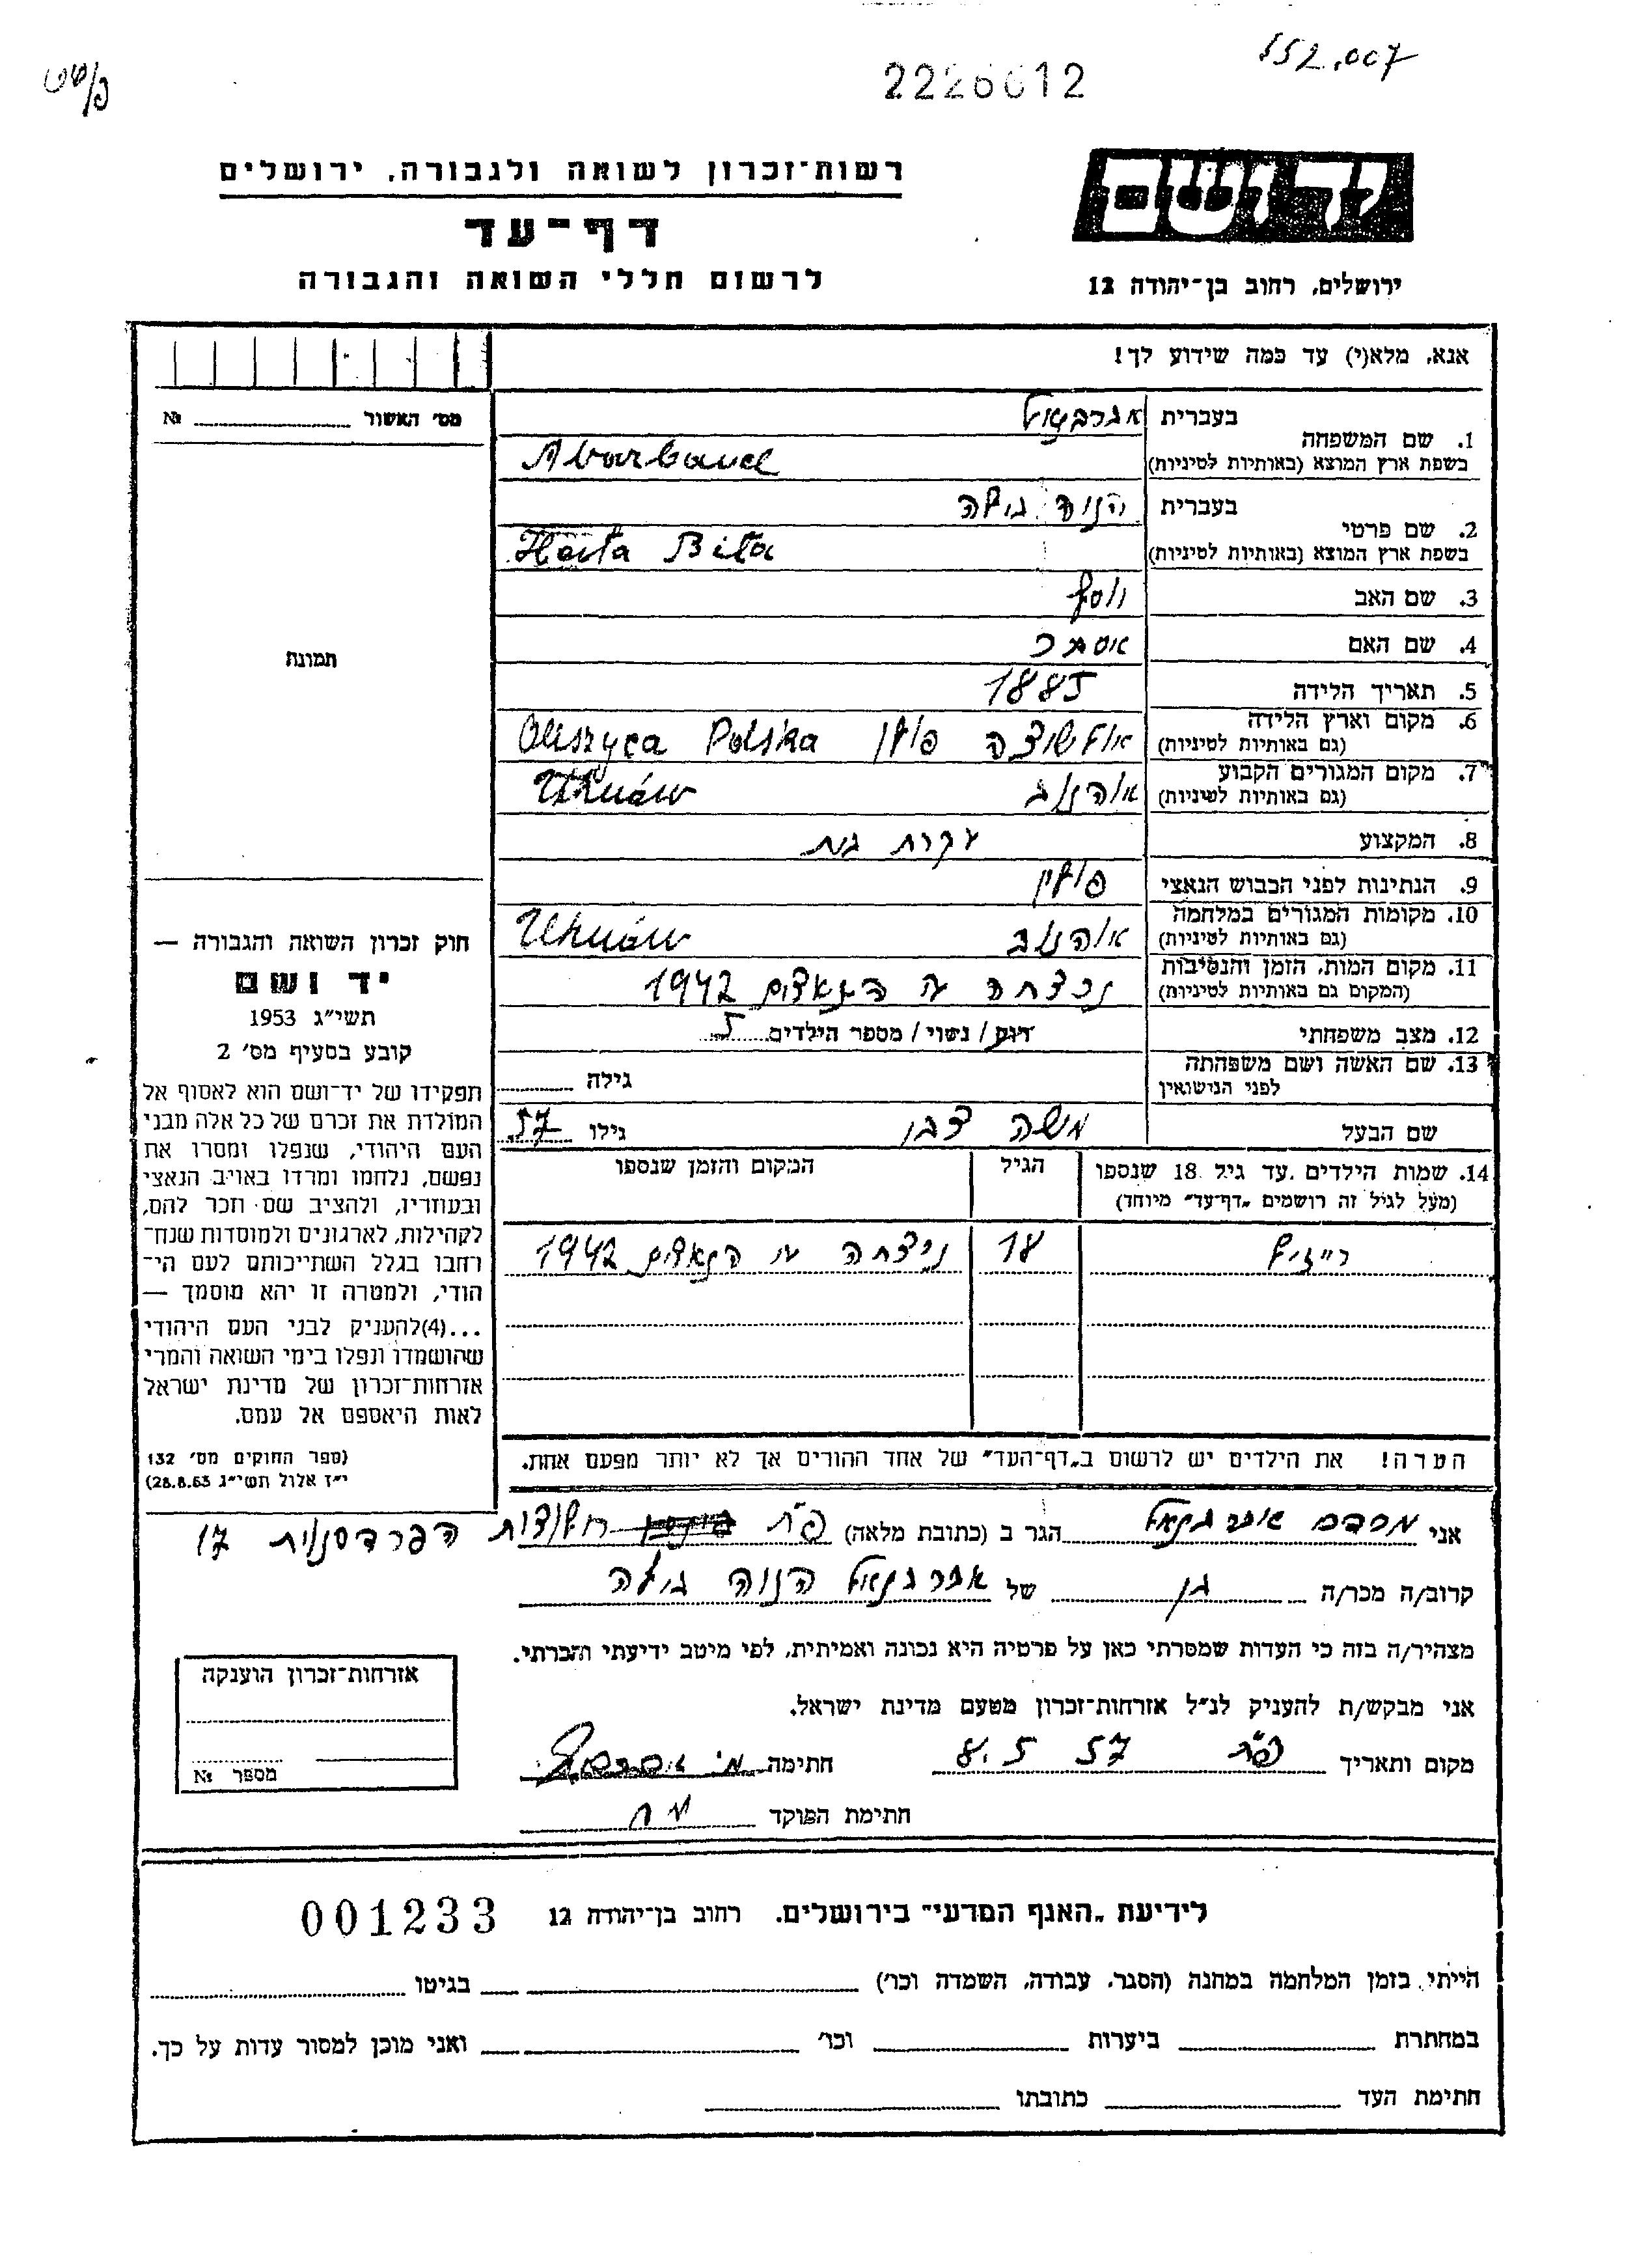 2226612
552.007
יד ושם
רשות־זכרון לשואה ולגבורה, ירושלים
דף־עד
לרשום חללי השואה והגבורה
ירושלים, רחוב בן־יהודה 12
אנא, מלא(י) עד כמה שידוע לך!
מס׳ האשור № 
1. שם המשפחה בעברית אברבנאל
בשפת ארץ המוצא (באותיות לטיניות) Abarbanel
2. שם פרטי בעברית הנוה בילה
בשפת ארץ המוצא (באותיות לטיניות) Bila
3. שם האב יוסף
4. שם האם אסתר
5. תאריך הלידה 1885
6. מקום וארץ הלידה (גם באותיות לטיניות) אולשיצה פולין Oleszyca Polska
7. מקום המגורים הקבוע (גם באותיות לטיניות) אוהנוב Uhnów
8. המקצוע עקרת בית
9. הנתינות לפני הכבוש הנאצי פולין
10. מקומות המגורים במלחמה (גם באותיות לטיניות) אוהנוב Uhnów
11. מקום המות, הזמן והנסיבות (המקום גם באותיות לטיניות) נרצחה ע״י הנאצים 1942
12. מצב משפחתי רווק / נשוי / מספר הילדים 5
13. שם האשה ושם משפחתה לפני הנישואין גילה
שם הבעל משה צבי גילו 57
14. שמות הילדים עד גיל 18 שנספו (מעל לגיל זה רושמים „דף־עד״ מיוחד) הגיל המקום והזמן שנספו
רייזיל 18 נרצחה ע״י הנאצים 1942
הערה! את הילדים יש לרשום ב„דף־העד״ של אחד ההורים אך לא יותר מפעם אחת.
תמונה
חוק זכרון השואה והגבורה —
יד ושם
תשי״ג 1953
קובע בסעיף מס׳ 2
תפקידו של יד־ושם הוא לאסוף אל
המולדת את זכרם של כל אלה מבני
העם היהודי, שנפלו ומסרו את
נפשם, נלחמו ומרדו באויב הנאצי
ובעוזריו, ולהציב שם וזכר להם,
לקהילות, לארגונים ולמוסדות שנח־
רחבו בגלל השתייכותם לעם הי־
הודי, ולמטרה זו יהא מוסמך —
...(4)להעניק לבני העם היהודי
שהושמדו ונפלו בימי השואה והמרי
אזרחות־זכרון של מדינת ישראל
לאות היאספם אל עמם.
(ספר החוקים מס׳ 132
י״ז אלול תשי״ג 28.8.53)
אני אברבנאל הגר ב (כתובת מלאה) פ״ת הפרדסנות 17
קרוב/ה מכר/ה בן של אברבנאל הנוה בילה
מצהיר/ה בזה כי העדות שמסרתי כאן על פרטיה היא נכונה ואמיתית, לפי מיטב ידיעתי והכרתי.
אני מבקש/ת להעניק לנ״ל אזרחות־זכרון מטעם מדינת ישראל.
מקום ותאריך פ״ת 8.5 57 חתימה
חתימת הפוקד
אזרחות־זכרון הוענקה
מספר №
לידיעת „האגף המדעי״ בירושלים. רחוב בן־יהודה 12 001233
הייתי בזמן המלחמה במחנה (הסגר, עבודה, השמדה וכו׳) בגיטו
במחתרת ביערות וכו׳ ואני מוכן למסור עדות על כך.
חתימת העד כתובתו